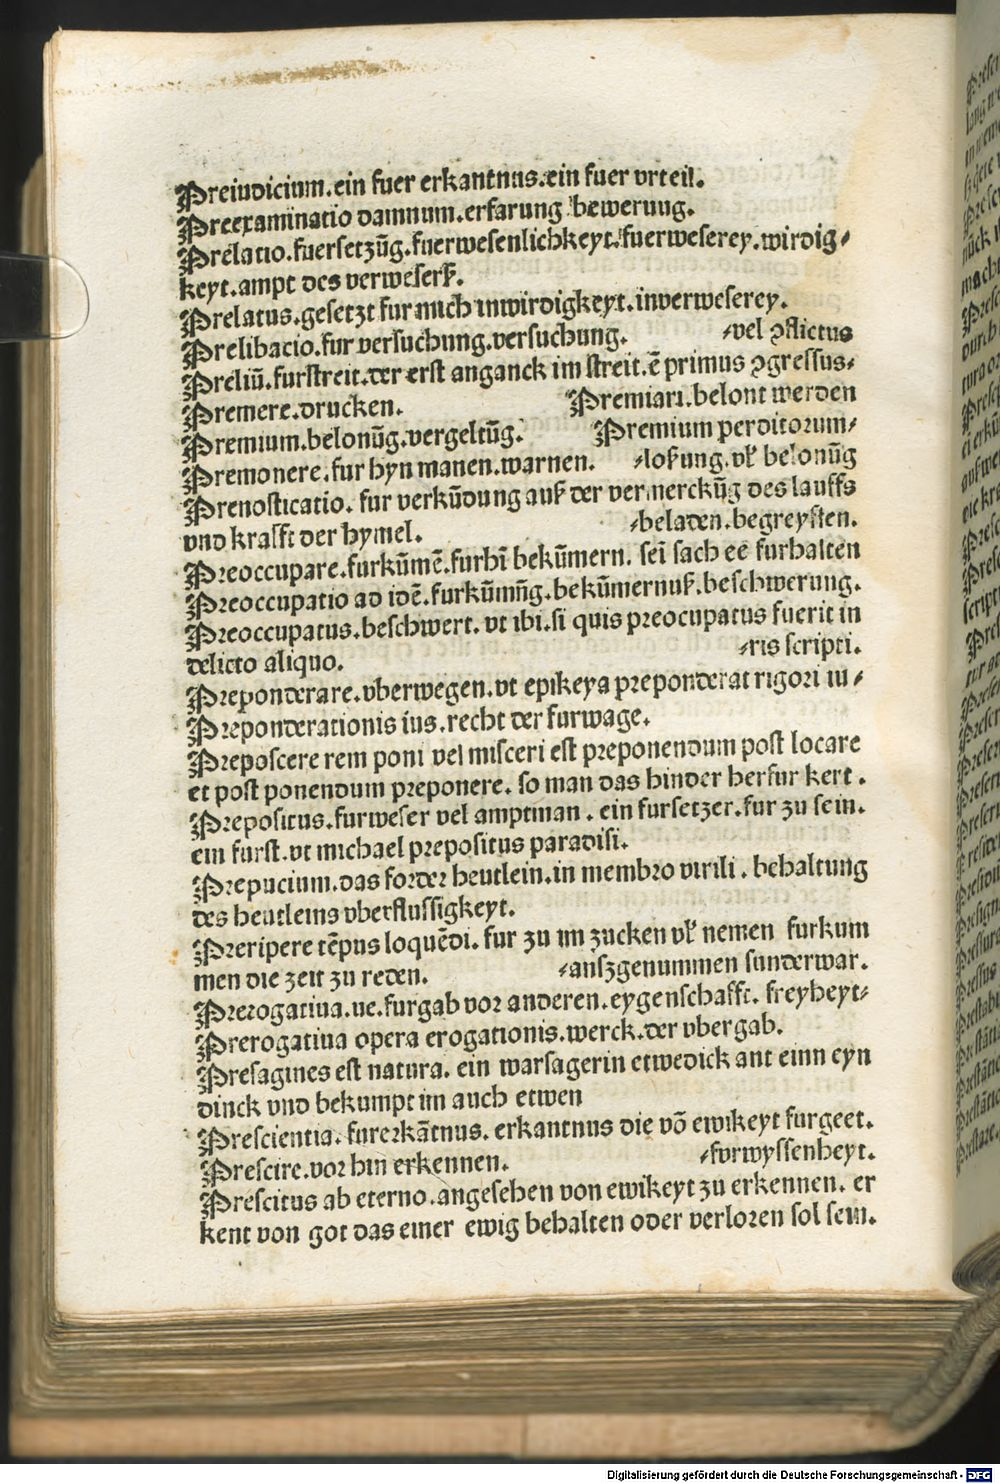 Preiudicium.ein fuer erkantnus.ein fuer vrteil.
Preexaminatio damnum.erfarung bewerung.
Prelatio.fuersetzūg.fuerwesenlichkeyt.fuerweserey.wirdig⸗
keyt.ampt des verweserß.
Prelatus.gesetzt fur mich inwirdigkeyt.inverweserey.
Prelibacio.fur versuchung.versuchung. ⸗vel ꝯflictus
Preliū.furstreit.der erst anganck im streit.ē primus ꝯgressus⸗
Premere.drucken. Premiari.belont werden
Premium.belonūg.vergeltūg. Premium perditorum⸗
Premonere.fur hyn manen.warnen. ⸗loßung.vß belonūg
Prenosticatio. fur verkūdung auß der vermerckūg des lauffs
vnd krafft der hymel. ⸗beladen.begreyffen.
Preoccupare.furkūmē.furhī bekūmern. sei sach ee furhalten
Preoccupatio ad idē.furkūmūg.bekūmernuß.beschwerung.
Preoccupatus.beschwert. vt ibi.si quis preocupatus fuerit in
delicto aliquo. ⸗ris scripti.
Preponderare.vberwegen.vt epikeya preponderat rigori iu⸗
Preponderationis ius.recht der furwage.
Preposcere rem poni vel misceri est preponendum post locare
et post ponendum preponere. so man das hinder herfur kert.
Prepositus.furweser vel amptman. ein fursetzer.fur zu sein.
ein furst.vt michael prepositus paradisi.
Prepucium.das forder heutlein.in membro virili. behaltung
des heutleins vberflussigkeyt.
Preripere tēpus loquēdi. fur zu im zucken vß nemen furkum
men die zeit zu reden. ⸗auszgenummen sunderwar.
Prerogatiua.ue.furgab vor anderen.eygenschafft. freyheyt⸗
Prerogatiua opera erogationis.werck.der vbergab.
Presagines est natura. ein warsagerin etwedick ant einn eyn
dinck vnd bekumpt im auch etwen
Prescientia. furerkātnus. erkantnus die vō ewikeyt furgeet.
Prescire.vor hin erkennen. ⸗forwyssenheyt.
Prescitus ab eterno.angesehen von ewikeyt zu erkennen. er
kent von got das einer ewig behalten oder verloren sol sein.
Digitalisierung gefördert durch die Deutsche Forschungsgemeinschaft - DFG